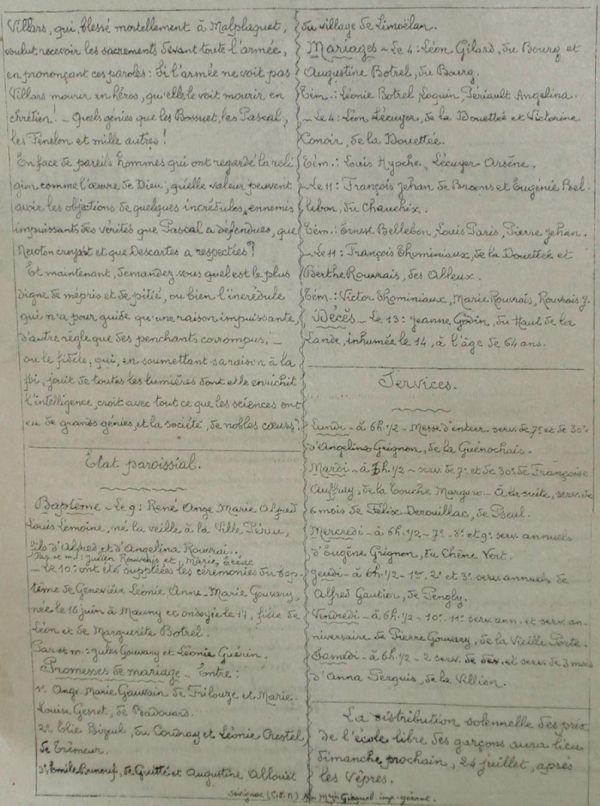 Villars, qui, blessé mortellement à Malplaquet,
voulut recevoir les sacrements devant toute l'armée,
en prononçant ces paroles: Si l'armée ne voit pas
Villars mourir en héros, qu'elle le voit mourir en
chrétien! - Quels génies que les Bossuet, les Pascal,
les Fénelon et mille autres!
En face de pareils hommes qui ont regardé la reli
gion comme l'œuvre de Dieu, quelle valeur peuvent
avoir les objections de quelques incrédules, ennemis
impuissants des vérités que Pascal a défendues, que
Newton croyait et que Descartes a respectées?
Et maintenant, demandez-vous quel est le plus
digne de mépris et de pitié, ou bien l'incrédule
qui n'a pour guide qu'une raison impuissante,
d'autre règle que des penchants corrompus, -
ou le fidèle, qui, en soumettant sa raison à la
foi, jouit de toutes les lumières dont elle enrichit
l'intelligence, croit avec tout ce que les sciences ont
eu de grands génies, et la société, de nobles cœurs.
État paroissial.
Baptême - Le 9: René Ange Marie Alfred
Louis Lemoine, né la veille à la Ville Pérue,
fils d'Alfred et d'Angelina Rouvrai.
Par. et m: Julien Rouvrais et Marie
- Le 10: ont été suppléées les cérémonies du bap
tême de Geneviève Léonie Anne-Marie Gouvary,
née le 16 juin à Mauny et ondoyée le 17, fille de
Léon et de Marguerite Botrel.
Par et m: Jules Gouvary et Léonie Guérin.
Promesses de mariage - Entre:
1º Ange-Marie Gauvain de Trilouze et Marie-
Louise Gesret, de
2º Elie Bizeul, du Cordnay et Léonie Crestel
de Trémeur.
3º Emile Brunouf, de Guitté et Augustine Allouët
du village de Limoëlan.
Mariages - Le 4: Léon Gilard, du Bourg et
Augustine Botrel, du Bourg.
Tém.: Léonie Botrel, Loquin, Périault Angelina.
- Le 4: Léon Lécuyer, de la Douettée et Victorine
Conoir, de la Douettée.
Tém.: Louis Hyoche, Lécuyer Arsène.
- Le 11: François Jehan de Broons et Eugénie Bel-
lebon, du Chauchix.
Tém.: Ernest Bellebon, Louis Paris, Pierre Jehan.
- Le 11: François Thominiaux, de la Douettée et
Berthe Rouvrais, des Alleux.
Tém.: Victor Thominiaux, Marie Rouvrais, Rouvrais J.
Décès - Le 13: Jeanne Godin, du Haut de la
Lande, inhumée le 14, à l'âge de 64 ans.
Services.
Lundi - à 6h.1/2 - Messe d'enter. serv. de 7e et de 30e
d'Angelina Grignon, de la Guénochais.
Mardi - à 6h.1/2 - serv. de 7e et de 30e de Françoise
Auffray, de la Touche Margaro - à la suite, serv. de
6 mois de Félix Derouillac, de
Mercredi - à 6h.1/2 - 7e, 8e et 9e serv. annuels
d'Eugène Grignon, du Chêne Vert.
Jeudi - à 6h.1/2 - 1er, 2e et 3e serv. annuels de
Alfred Gautier, de Pengly.
Vendredi - à 6h.1/2 - 10e, 11e serv. ann. et serv. an-
niversaire de Pierre Gouvary, de la Vieille Porte.
Samedi - à 6h.1/2 - 2 serv. de dev. et serv. de 3 mois
d'Anna Serguis, de la Villion.
La distribution solennelle des prix
de l'école libre des garçons aura lieu
dimanche prochain, 24 juillet, après
les Vêpres.
Sévignac (C.d.N) imp-gérant.